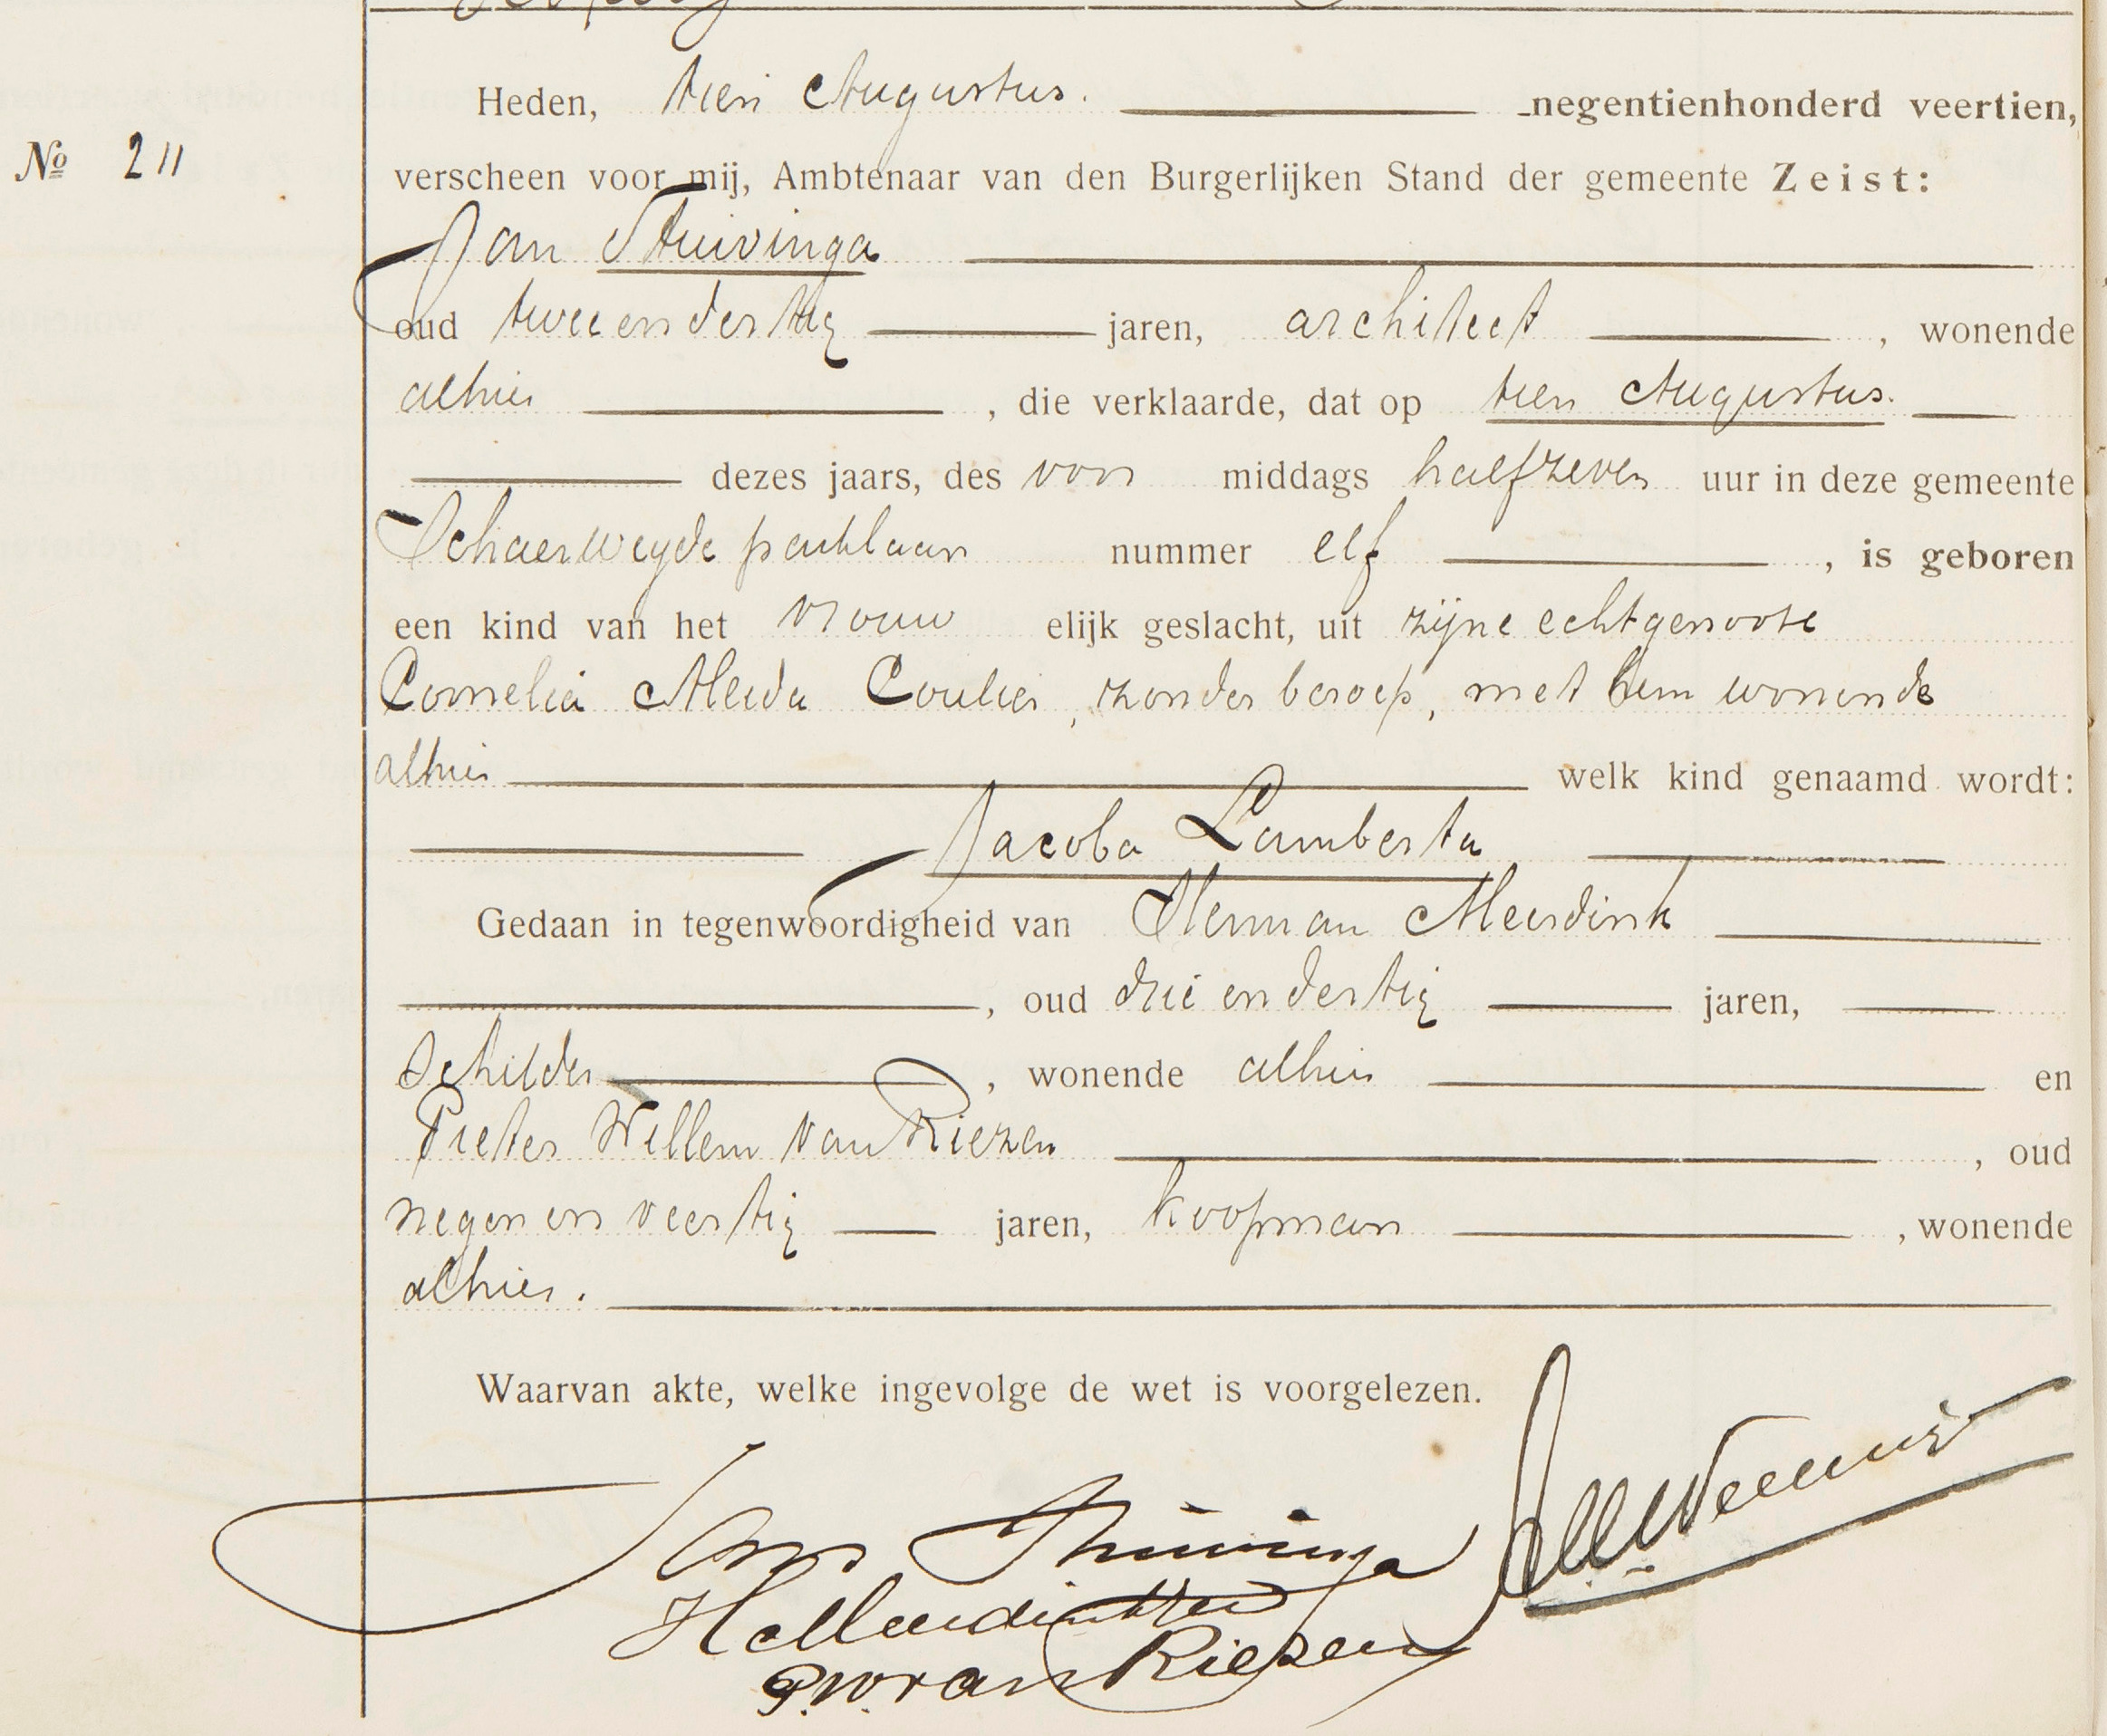 Heden, tien Augustus. negentienhonderd veertien,
No 211
verscheen voor mij, Ambtenaar van den Burgerlijken Stand der gemeente Zeist:
Jan Stuivinga
oud twee en dertig jaren, architect , wonende
alhier , die verklaarde, dat op tien Augustus.
dezes jaars, des voor middags half zeven uur in deze gemeente
Schaerweyde parklaan nummer elf , is geboren
een kind van het vrouw elijk geslacht, uit zijne echtgenoote
Cornelia Aleida , zonder beroep, met hem wonende
alhier welk kind genaamd wordt:
Jacoba Lamberta
Gedaan in tegenwoordigheid van Herman Meerdink
, oud drie en dertig jaren,
schilder , wonende alhier en
Pieter Willem van Riezen , oud
negen en veertig jaren, koopman , wonende
alhier.
Waarvan akte, welke ingevolge de wet is voorgelezen.
Jan Stuivinga
H Meerdink
P.W. van Riezen